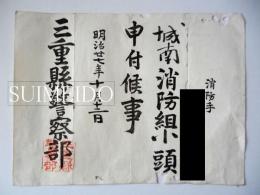 消防手
城南消防組小頭
申付候事
明治廿七年十月十二日
三重縣警察部
SUIMEIDO